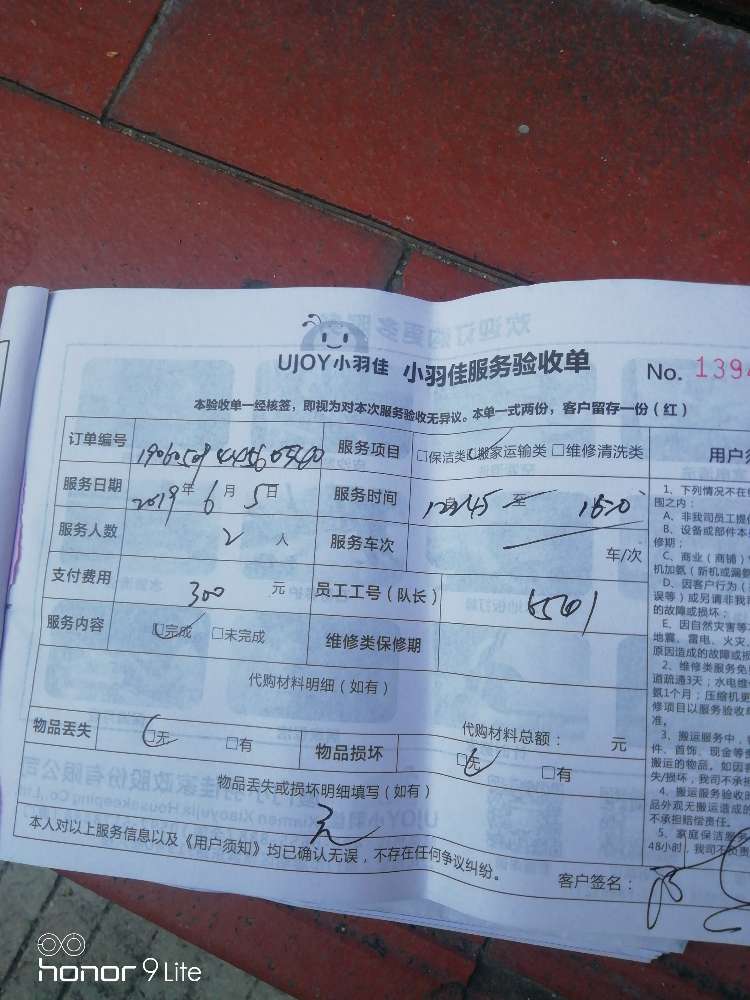 UJOY小羽佳 小羽佳服务验收单 No. 1394
本验收单一经核签，即视为对本次服务验收无异议。本单一式两份，客户留存一份（红）
订单编号 服务项目 □保洁类 □搬家运输类 □维修清洗类
服务日期 2019年6月5日 服务时间 至
服务人数 2 人 服务车次 车/次
支付费用 300 元 员工工号（队长） 5501
服务内容 □完成 □未完成 维修类保修期
代购材料明细（如有）
代购材料总额： 元
物品丢失 □无 □有 物品损坏 □无 □有
物品丢失或损坏明细填写（如有）
无
本人对以上服务信息以及《用户须知》均已确认无误，不存在任何争议纠纷。
客户签名：
用户须
1、下列情况不在
围之内：
A、非我司员工提
B、设备或部件本
修期；
C、商业（商铺）
机加氨（新机或漏
D、因客户行为（
误等）或另请非我
的故障或损坏；
E、因自然灾害等
地震、雷电、火灾
原因造成的故障或损
2、维修类服务免
道疏通3天；水电维
氨1个月；压缩机更
修项目以服务验收
准。
3、搬运服务中，
件、首饰、现金等
搬运的物品。如因
失/损坏，我司不承
4、搬运服务验收
品外观无搬运造成的
不承担赔偿责任。
5、家庭保洁服
48小时，我司不负责
honor 9 Lite